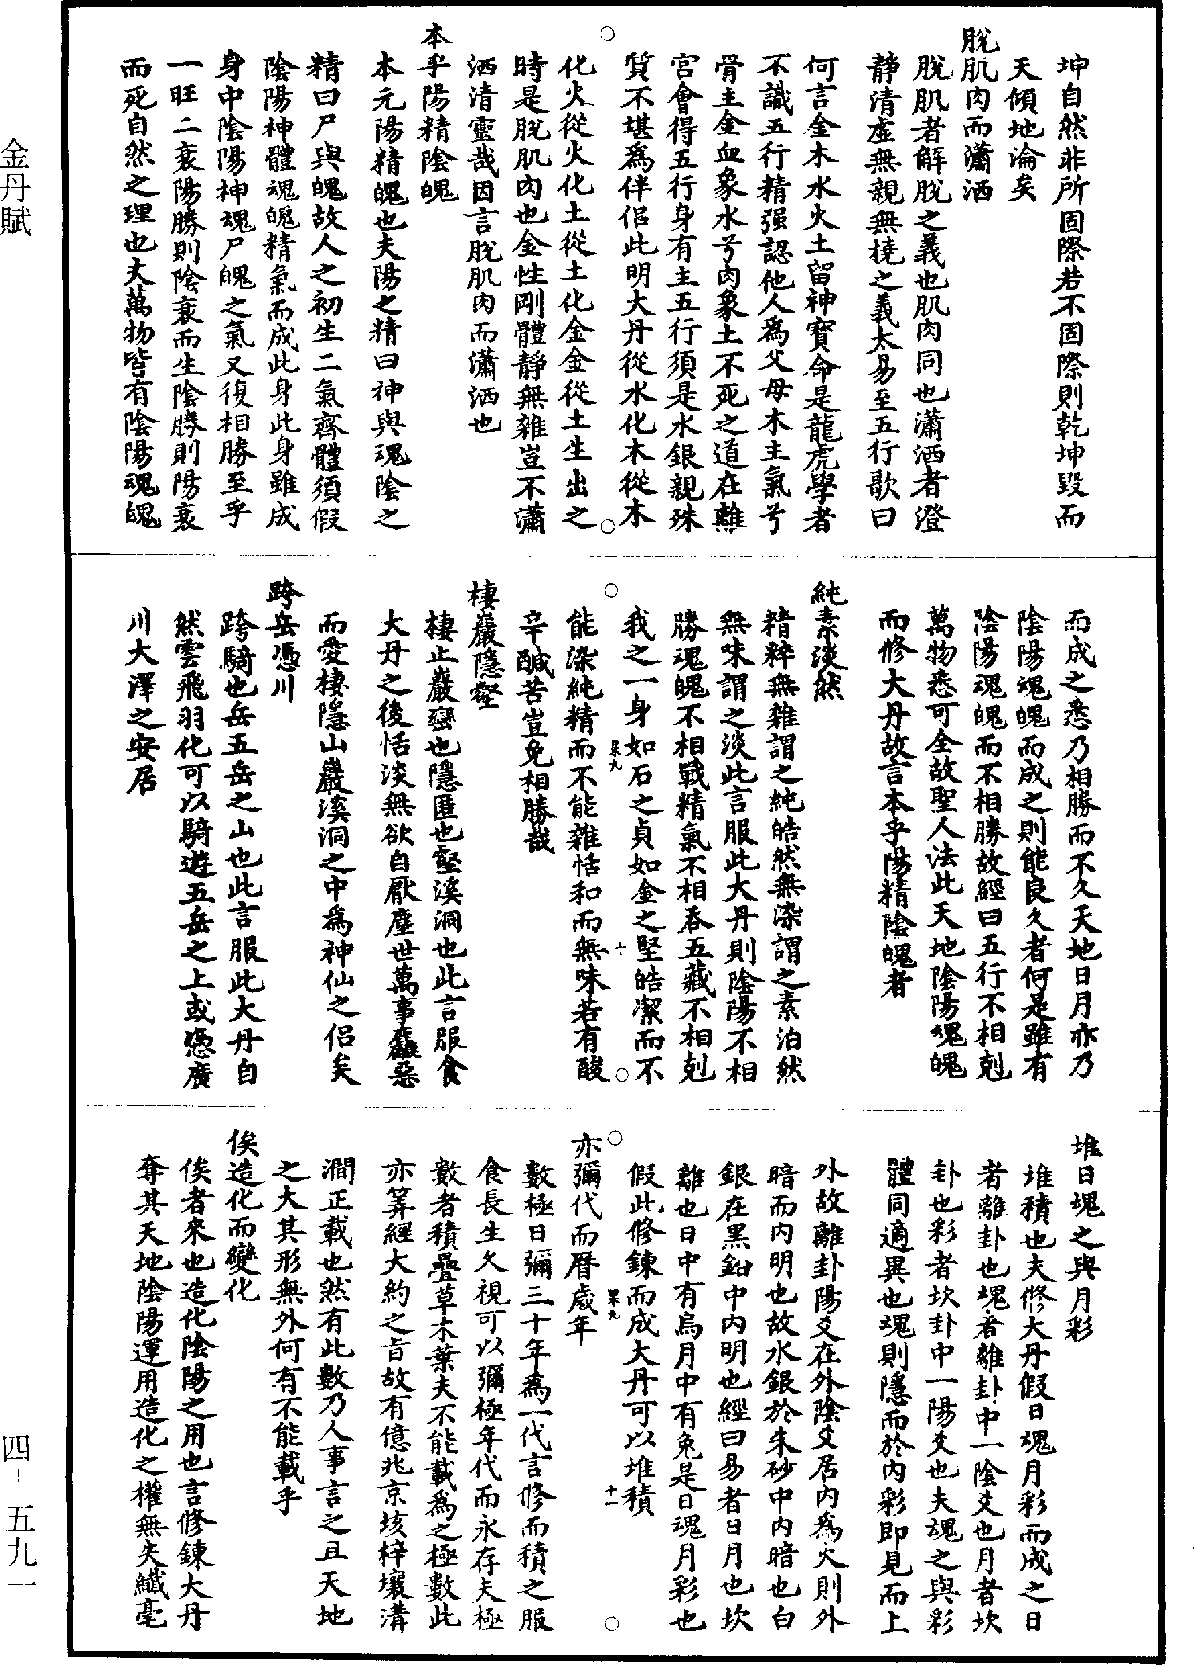 坤自然非所固際若不固際則乾坤毀而
天傾地淪矣
脫肌肉而瀟洒
脫肌者解脫之義也肌肉同也瀟洒者澄
靜清虛無親無撓之義太易至五行歌曰
何言金木水火土留神寶命是龍虎學者
不識五行精强認他人為父母木主氣兮
骨主金血象水兮肉象土不死之道在離
宮會得五行身有主五行須是水銀親殊
質不堪為伴侶此明大丹從水化木從木
化火從火化土從土化金金從土生出之
時是脫肌肉也金性剛體靜無雜豈不瀟
洒清靈哉因言脫肌肉而瀟洒也
本乎陽精陰魄
本元陽精魄也夫陽之精曰神與魂陰之
精曰尸與魄故人之初生二氣齊體須假
陰陽神體魂魄精氣而成此身此身雖成
身中陰陽神魂尸魄之氣又復相勝至乎
一旺二衰陽勝則陰衰而生陰勝則陽衰
而死自然之理也夫萬物皆有陰陽魂魄
而成之悉乃相勝而不久天地日月亦乃
陰陽魂魄而成之則能良久者何是雖有
陰陽魂魄而不相勝故經曰五行不相剋
萬物悉可全故聖人法此天地陰陽魂魄
而修大丹故言本乎陽精陰魄者
純素淡然
精粹無雜謂之純皓然無染謂之素泊然
無味謂之淡此言服此大丹則陰陽不相
勝魂魄不相戰精氣不相吞五藏不相剋
我之一身如石之貞如金之堅皓潔而不
杲九
十
能染純精而不能雜恬和而無味若有酸
辛鹹苦豈免相勝哉
棲巖隱壑
棲止巖巒也隱匿也壑溪洞也此言服食
大丹之後恬淡無欲自厭塵世萬事麤惡
而愛棲隱山巖溪洞之中為神仙之侶矣
跨岳憑川
跨騎也岳五岳之山也此言服此大丹自
然雲飛羽化可以騎遊五岳之上或憑廣
川大澤之安居
堆日魂之與月彩
堆積也夫修大丹假日魂月彩而成之日
者離卦也魂者離卦中一陰爻也月者坎
卦也彩者坎卦中一陽爻也夫魂之與彩
體同適異也魂則隱而於內彩即見而上
外故離卦陽爻在外陰爻居內為火則外
暗而內明也故水銀於朱砂中內暗也白
銀在黑鈆中內明也經曰易者日月也坎
離也日中有烏月中有兔是日魂月彩也
假此修鍊而成大丹可以堆積
杲九
十一
亦彌代而曆歲年
數極日彌三十年為一代言修而積之服
食長生久視可以彌極年代而永存夫極
數者積疊草木葉夫不能載為之極數此
亦筭經大約之旨故有億兆京垓梓壤溝
澗正載也然有此數乃人事言之且天地
之大其形無外何有不能載乎
俟造化而變化
俟者來也造化陰陽之用也言修鍊大丹
奪其天地陰陽運用造化之權無失纖毫
金丹賦
四-五九一